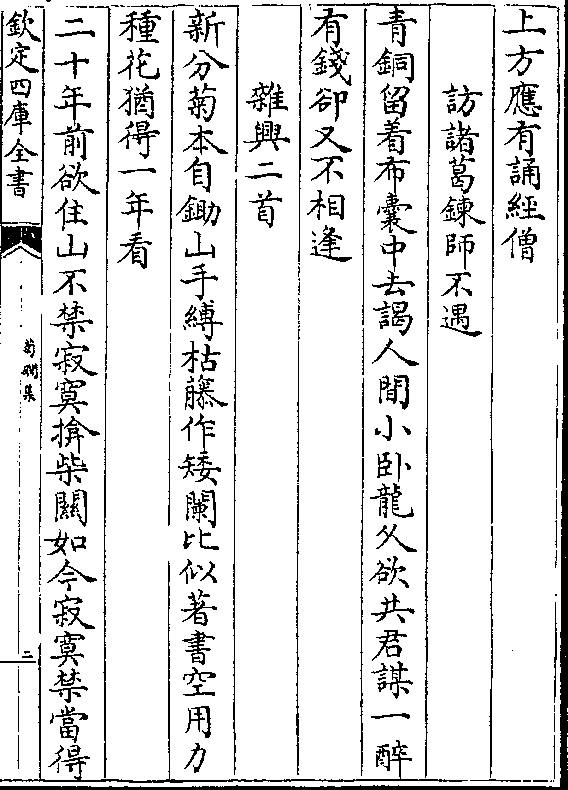 上方應有誦經僧
訪諸葛鍊師不遇
青銅留着布囊中去謁人間小卧龍乆欲共君謀一醉
有錢卻又不相逢
雜興二首
新分菊本自鋤山手縛枯藤作矮闌比似著書空用力
種花猶得一年看
二十年前欲住山不禁寂寞揜柴關如今寂寞禁當得
欽定四庫全書
菊磵集
二